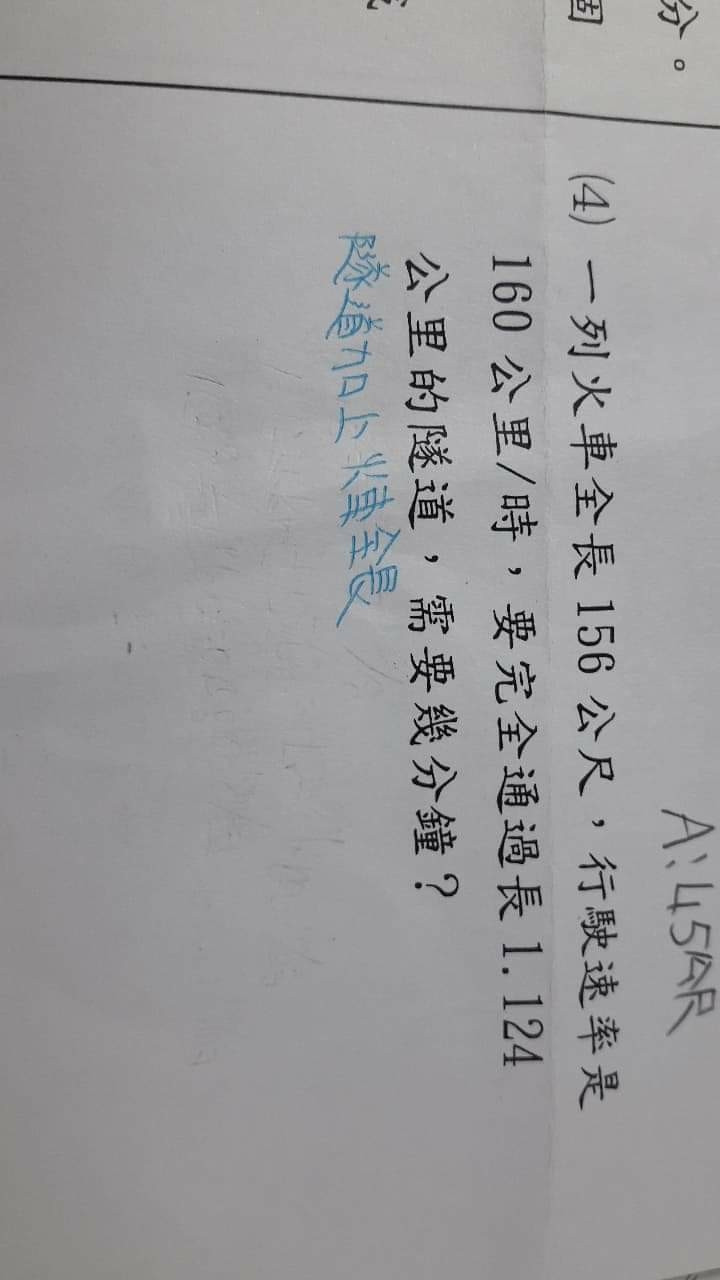 分。
個
A:45公尺
(4) 一列火車全長156公尺，行駛速率是
160公里/時，要完全通過長1.124
公里的隧道，需要幾分鐘？
隧道加上火車全長